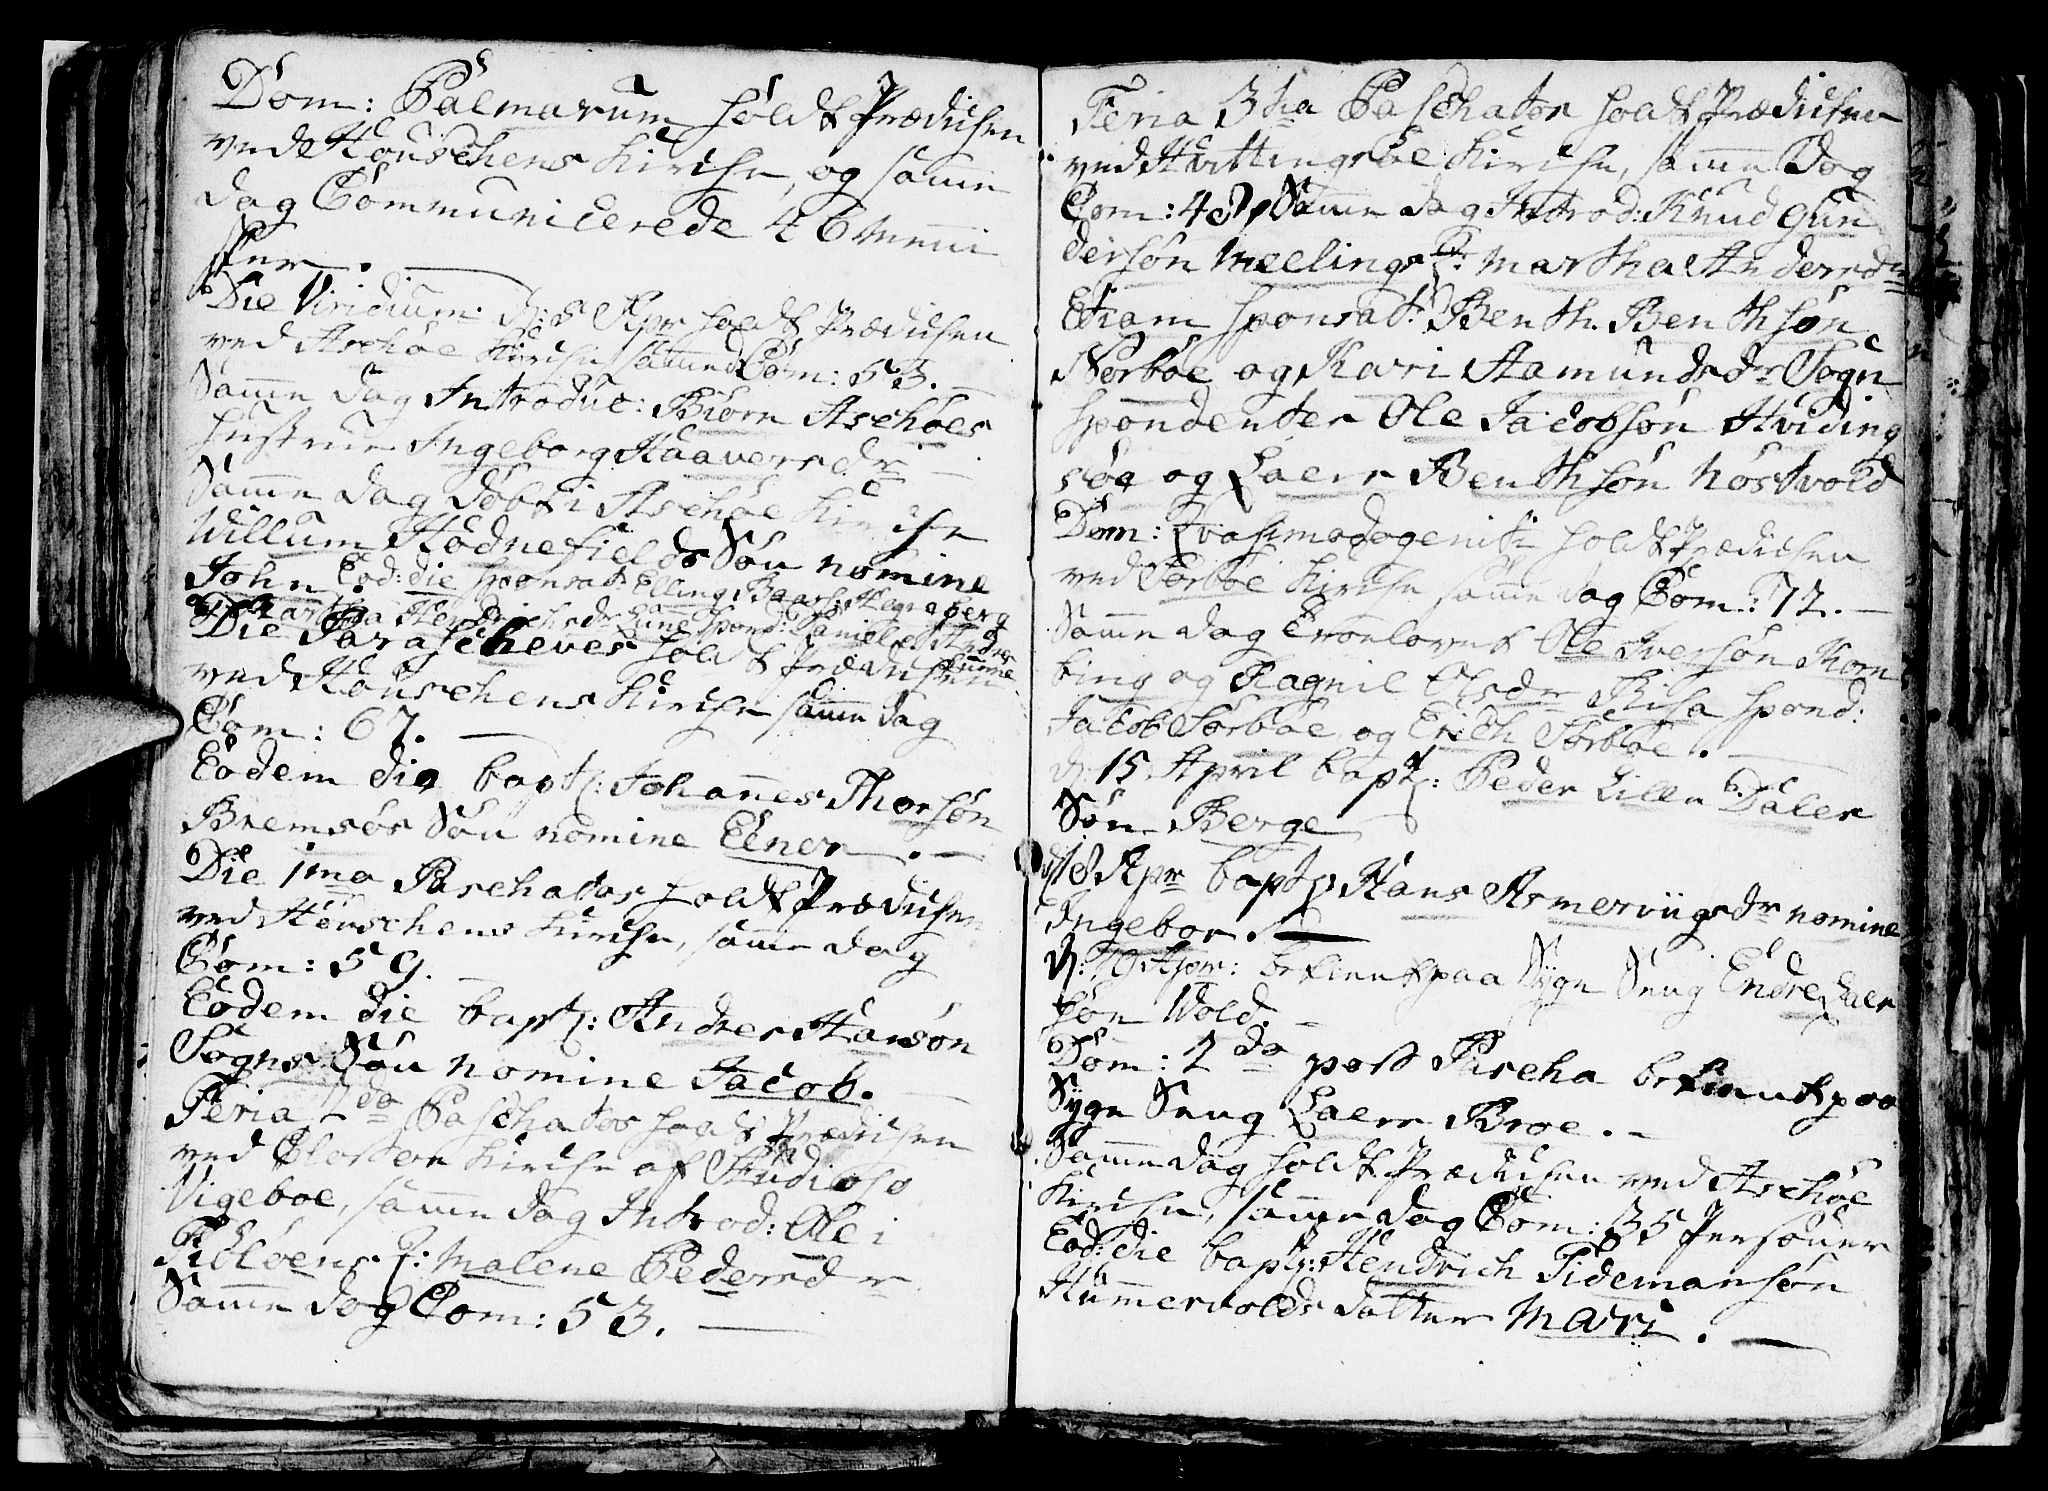 Dom: Palmarum holdt Prædichen
ved Houschens Kirche, og samme
dag Communicerede 46 Menni
sker.
Die Viridium d: 5 Apr holdt Prædichen
ved Aschöe Kirche samme d Com: 53.
Samme dag Introduc: Biörn Aschöes
hustrue Ingeborg Haaversdr
Samme dag döbt i Aschöe Kirche
Willum Hodnefields Sön nomine
John. Eod: die sponsat: Elling Haagenberg
Martha Hendrichsdr Lunne spond: Daniel
Die Parascheves holdt Prædichen
ved Houschens Kirche samme dag
Com: 67.
Eodem die bapt: Johannes Thorsön
Bremsös Sön nomine Elner.
Die 1ma Paschatos holdt Prædichen
ved Houschens Kirche, samme dag
Com: 59.
Eodem die bapt: Andres Hansön
Sogns Sön nomine Jacob.
Feria 2da Paschatos holdt Prædichen
ved Closter Kirche af Studioso
Vigeboe, samme dag Introd: Ole i
Fiölöens H: Malene Pedersdr
Samme dag Com: 53.
Feria 3tia Paschatos holdt Prædichen
ved Hvittingsöe Kirche, samme Dag
Com: 48, Samme dag Introd: Knud Gun
dersön Meelings H: Martha Andersdr
Etiam sponsat: Benth Benthsön
Norböe og Kari Aamundsdr Sogn
spondenter Ole Jacobsön Hviding
söe og Laers Benthsön Nostvold
Dom: Qvasimodogeniti holdt Prædichen
ved Sörböe Kirche samme dag Com: 72.
Samme dag Troelovet Ole Iversön Korn
bing og Ragnil Olsdr Risa spond:
Jacob Sörböe og Erich Sörböe.
d: 15 April bapt: Peder Lille Dales
Sön Berge
d 18 Apr bapt: Hans Asmervigs dr nomine
Ingebor.
d: 19 Apr: betient paa Syge Seng Endre Laer
sön Wold.
Dom: 2da post Pascha betient paa
Syge Seng Laers Broe.
Samme dag holdt Prædichen ved Aschöe
Kirche, samme dag Com: 35 Personer
Eod: die bapt: Hendrich Tidemansön
Hummervolds datter Mari.